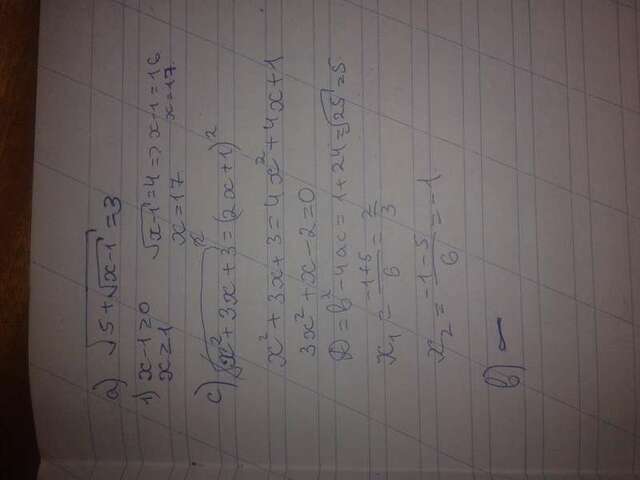 a) √5+√x-1 = 3
1) x-1≥0 √x-1 = 4 => x-1=16
x≥1 x=17 x=17
c) √(x²+3x+3)² = (2x+1)²
x²+3x+3=4x²+4x+1
3x²+x-2=0
D=b²-4ac=1+24=√25=5
x₁ = -1+5/6 = 2/3
x₂ = -1-5/6 = -1
b) —